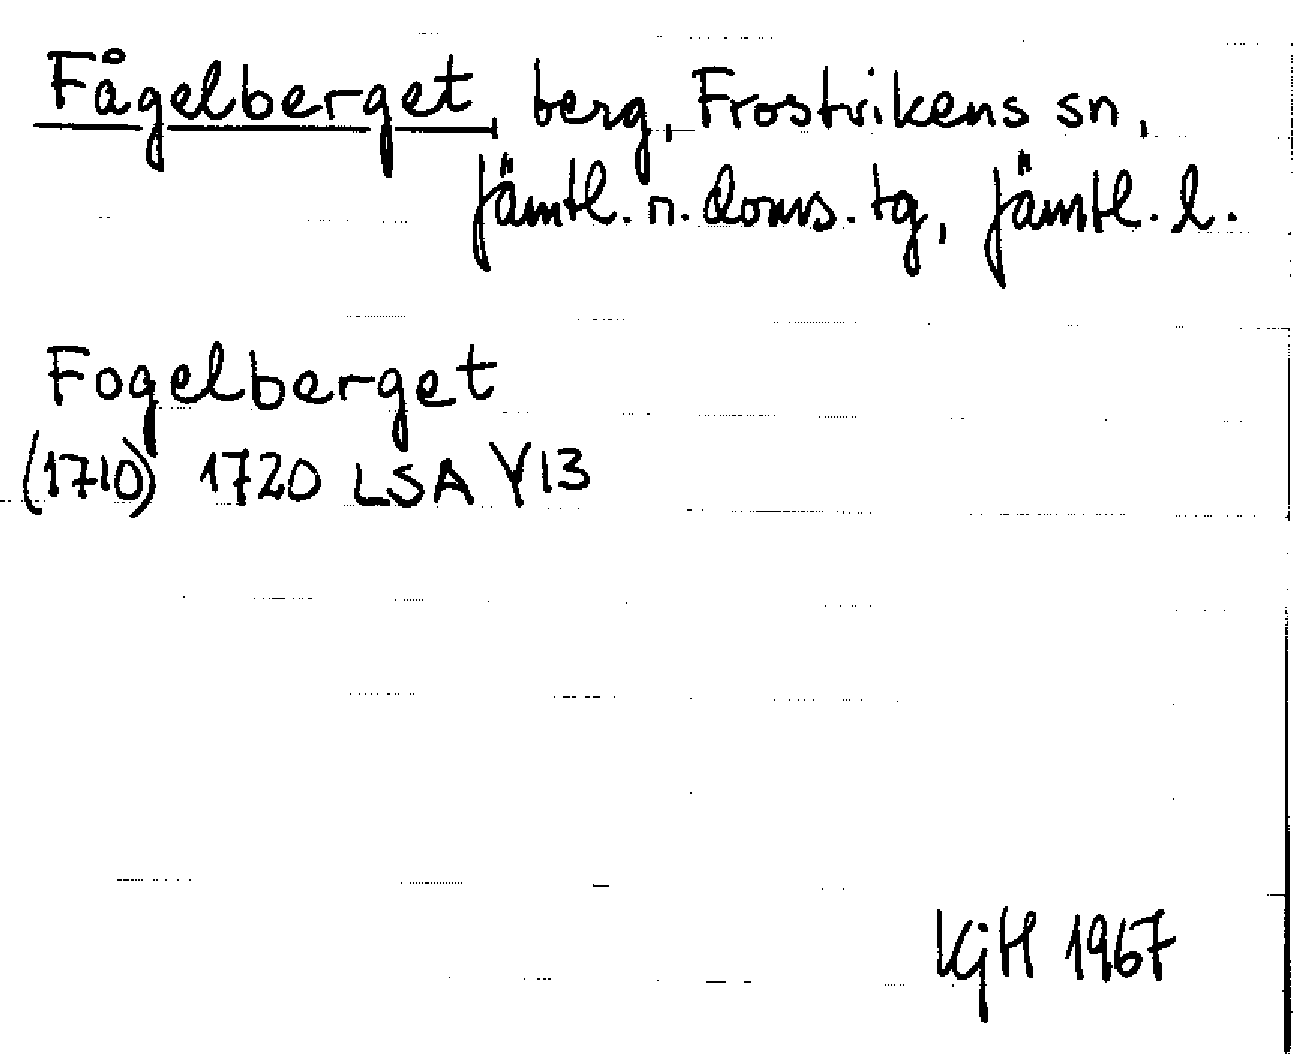 Fågelberget, berg, Frostvikens sn,
Jämtl. n. doms. tg, Jämtl. l.
Fogelberget
(1710) 1720 LSA Y13
KjH 1967